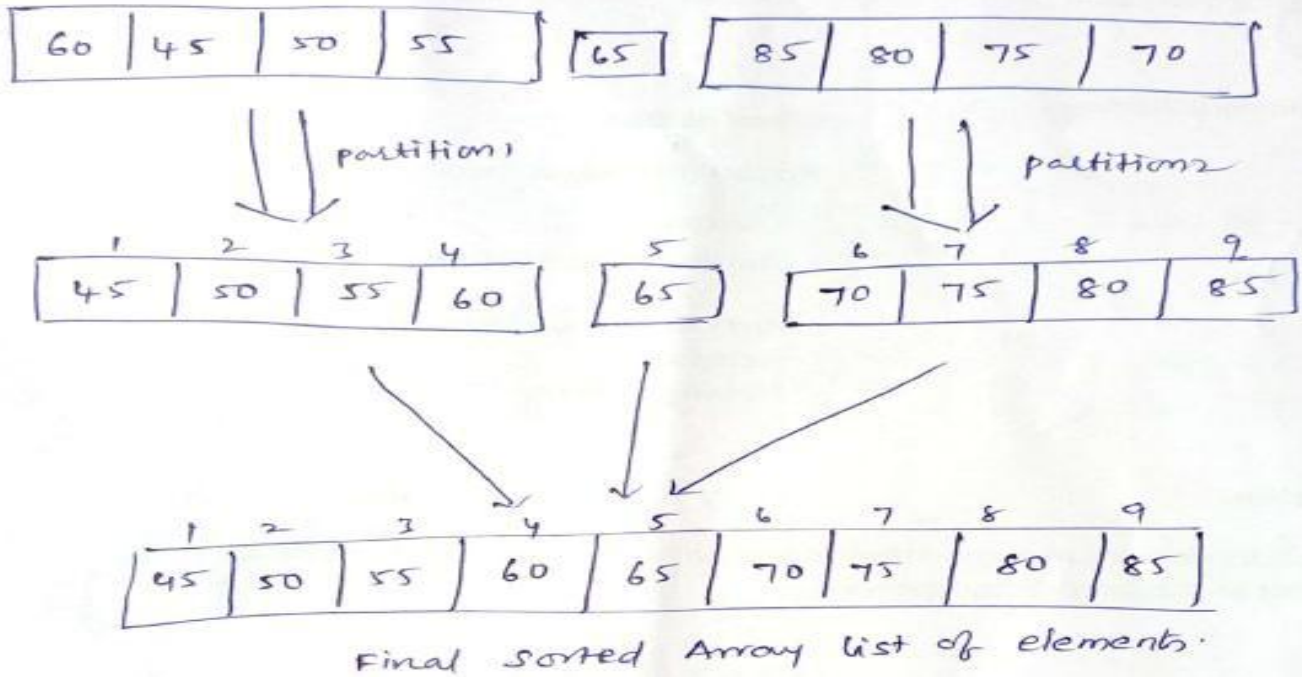 60 45 50 55 65 85 80 75 70
partition1 partition2
1 2 3 4 5 6 7 8 9
45 50 55 60 65 70 75 80 85
1 2 3 4 5 6 7 8 9
45 50 55 60 65 70 75 80 85
Final Sorted Array list of elements.